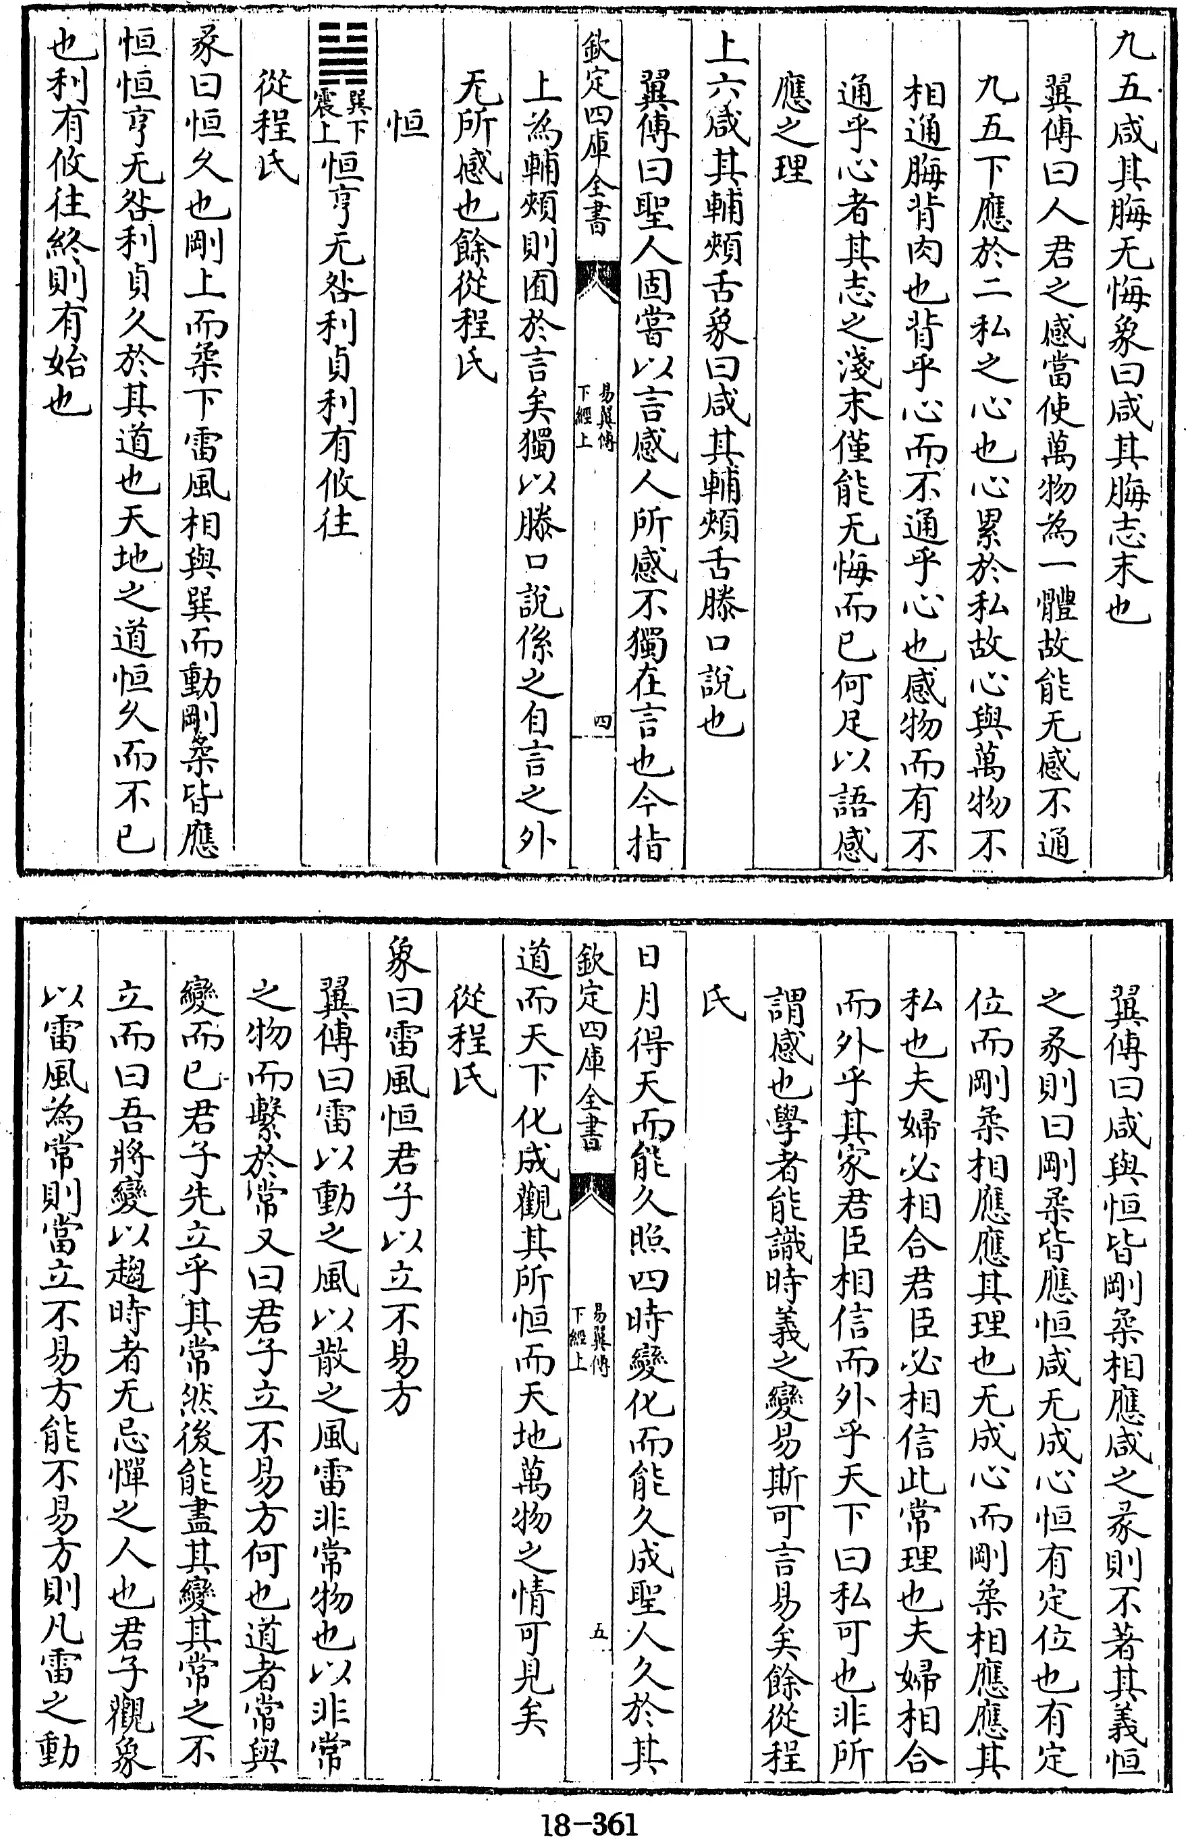 九五咸其脢无悔象曰咸其脢志末也
翼傳曰人君之感當使萬物為一體故能无感不通
九五下應於二私之心也心累於私故心與萬物不
相通脢背肉也背乎心而不通乎心也感物而有不
通乎心者其志之淺末僅能无悔而已何足以語感
應之理
上六咸其輔頰舌象曰咸其輔頰舌滕口說也
翼傳曰聖人固嘗以言感人所感不獨在言也今指
欽定四庫全書
易翼傳
下經上
四
上為輔頰則囿於言矣獨以滕口說係之自言之外
无所感也餘從程氏
恒
巽下
震上
恒亨无咎利貞利有攸往
從程氏
彖曰恒久也剛上而柔下雷風相與巽而動剛柔皆應
恒恒亨无咎利貞久於其道也天地之道恒久而不已
也利有攸往終則有始也
翼傳曰咸與恒皆剛柔相應咸之彖則不著其義恒
之彖則曰剛柔皆應恒咸无成心恒有定位也有定
位而剛柔相應應其理也无成心而剛柔相應應其
私也夫婦必相合君臣必相信此常理也夫婦相合
而外乎其家君臣相信而外乎天下曰私可也非所
謂感也學者能識時義之變易斯可言易矣餘從程
氏
日月得天而能久照四時變化而能久成聖人久於其
欽定四庫全書
易翼傳
下經上
五
道而天下化成觀其所恒而天地萬物之情可見矣
從程氏
象曰雷風恒君子以立不易方
翼傳曰雷以動之風以散之風雷非常物也以非常
之物而繫於常又曰君子立不易方何也道者常與
變而已君子先立乎其常然後能盡其變其常之不
立而曰吾將變以趨時者无忌憚之人也君子觀象
以雷風為常則當立不易方能不易方則凡雷之動
18-361